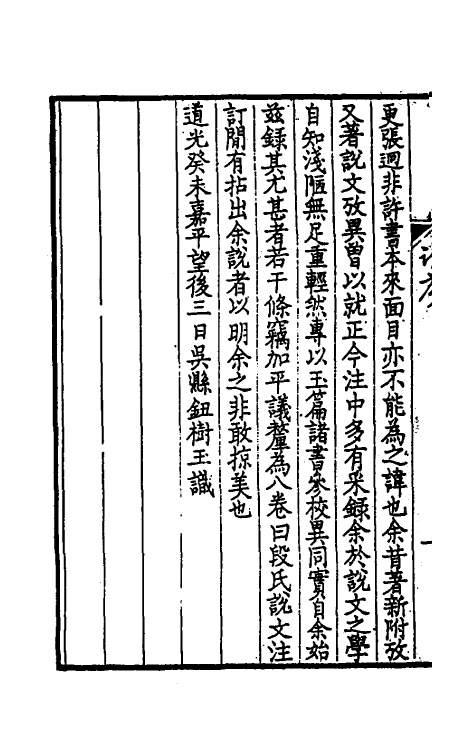 更張迥非許書本來面目亦不能為之諱也余昔著新附攷
又著說文攷異曽以就正今注中多有采錄余於說文之學
自知淺陋無足重輕然專以玉篇諸書參校異同實自余始
兹錄其尤甚者若干條竊加平議釐為八卷曰段氏說文注
訂閒有拈出余說者以明余之非敢掠美也
道光癸未嘉平望後三日吳縣鈕樹玉識